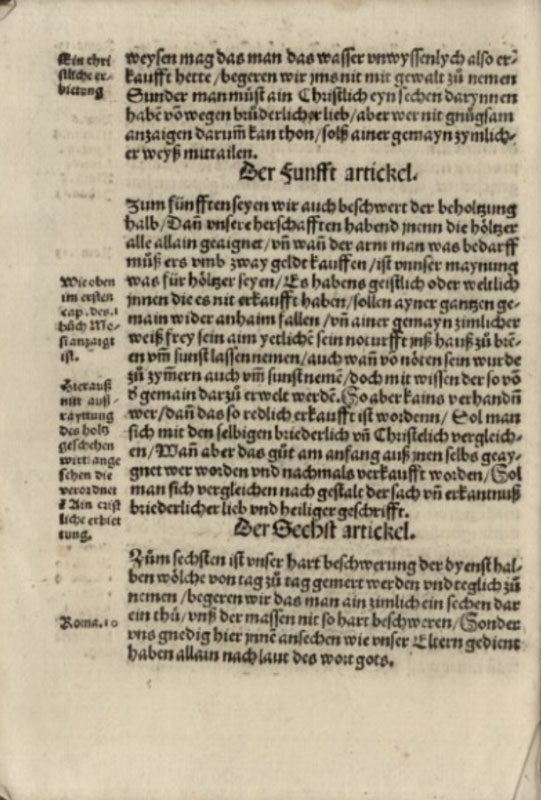 Ein chri
stliche er-
bietung
weysen mag das man das wasser vnwyssenlych also er-
kaufft hette/begeren wir jms nit mit gewalt zů nemen
Sunder man můst ain Christlich eyn sechen darynnen
habē vō wegen brůderlicher lieb/aber wer nit gnůgsam
anzaigen darum̄ kan thon/solß ainer gemayn zymlich-
er weyß mittailen.
Der Funfft artickel.
Zum fünfften seyen wir auch beschwert der beholtzung
halb/Dañ vnsere herschafften habend jnenn die höltzer
alle allain geaignet/vñ wañ der arm man was bedarff
můß ers vmb zway geldt kauffen/ist vnnser maynung
was für höltzer seyen/Es habens geistlich oder weltlich
jnnen die es nit erkaufft haben/sollen ayner gantzen ge-
main wider anhaim fallen/vñ ainer gemayn zimlicher
weiß frey sein aim yetlichē sein noturfft jnß hauß zů brē-
en vm̄ sunst lassen nemen/auch wañ vō nöten sein wurde
zů zym̄ern auch vm̄ sunst nemē/doch mit wissen der so vō
d̄ gemain darzů erwelt werdē. So aber kains verhandñ
wer/dañ das so redlich erkaufft ist wordenn/Sol man
sich mit den selbigen briederlich vñ Christelich vergleich-
en/Wañ aber das gůt am anfang auß jnen selbs geay-
gnet wer worden vnd nachmals verkaufft worden/Sol
man sich vergleichen nach gestalt der sach vñ erkantnuß
briederlicher lieb vnd heiliger geschrifft.
Wie oben
im ersten
cap. des.1
bůch Mo-
si anzaigt
ist.
Hierauß
nitt auß-
rayttung
des holtz
geschehen
wirt ange
sehen die
verordnet
Ain crist
liche erbiet
tung.
Der Sechst artickel.
Zům sechsten ist vnser hart beschwerung der dyenst hal-
ben wölche von tag zů tag gemert werden vnd teglich zů
nemen/begeren wir das man ain zimlich ein sechen dar
ein thů/vnß der massen nit so hart beschweren/Sonder
vns gnedig hier jnnē ansechen wie vnser Eltern gedient
haben allain nach laut des wort gots.
Roma.10